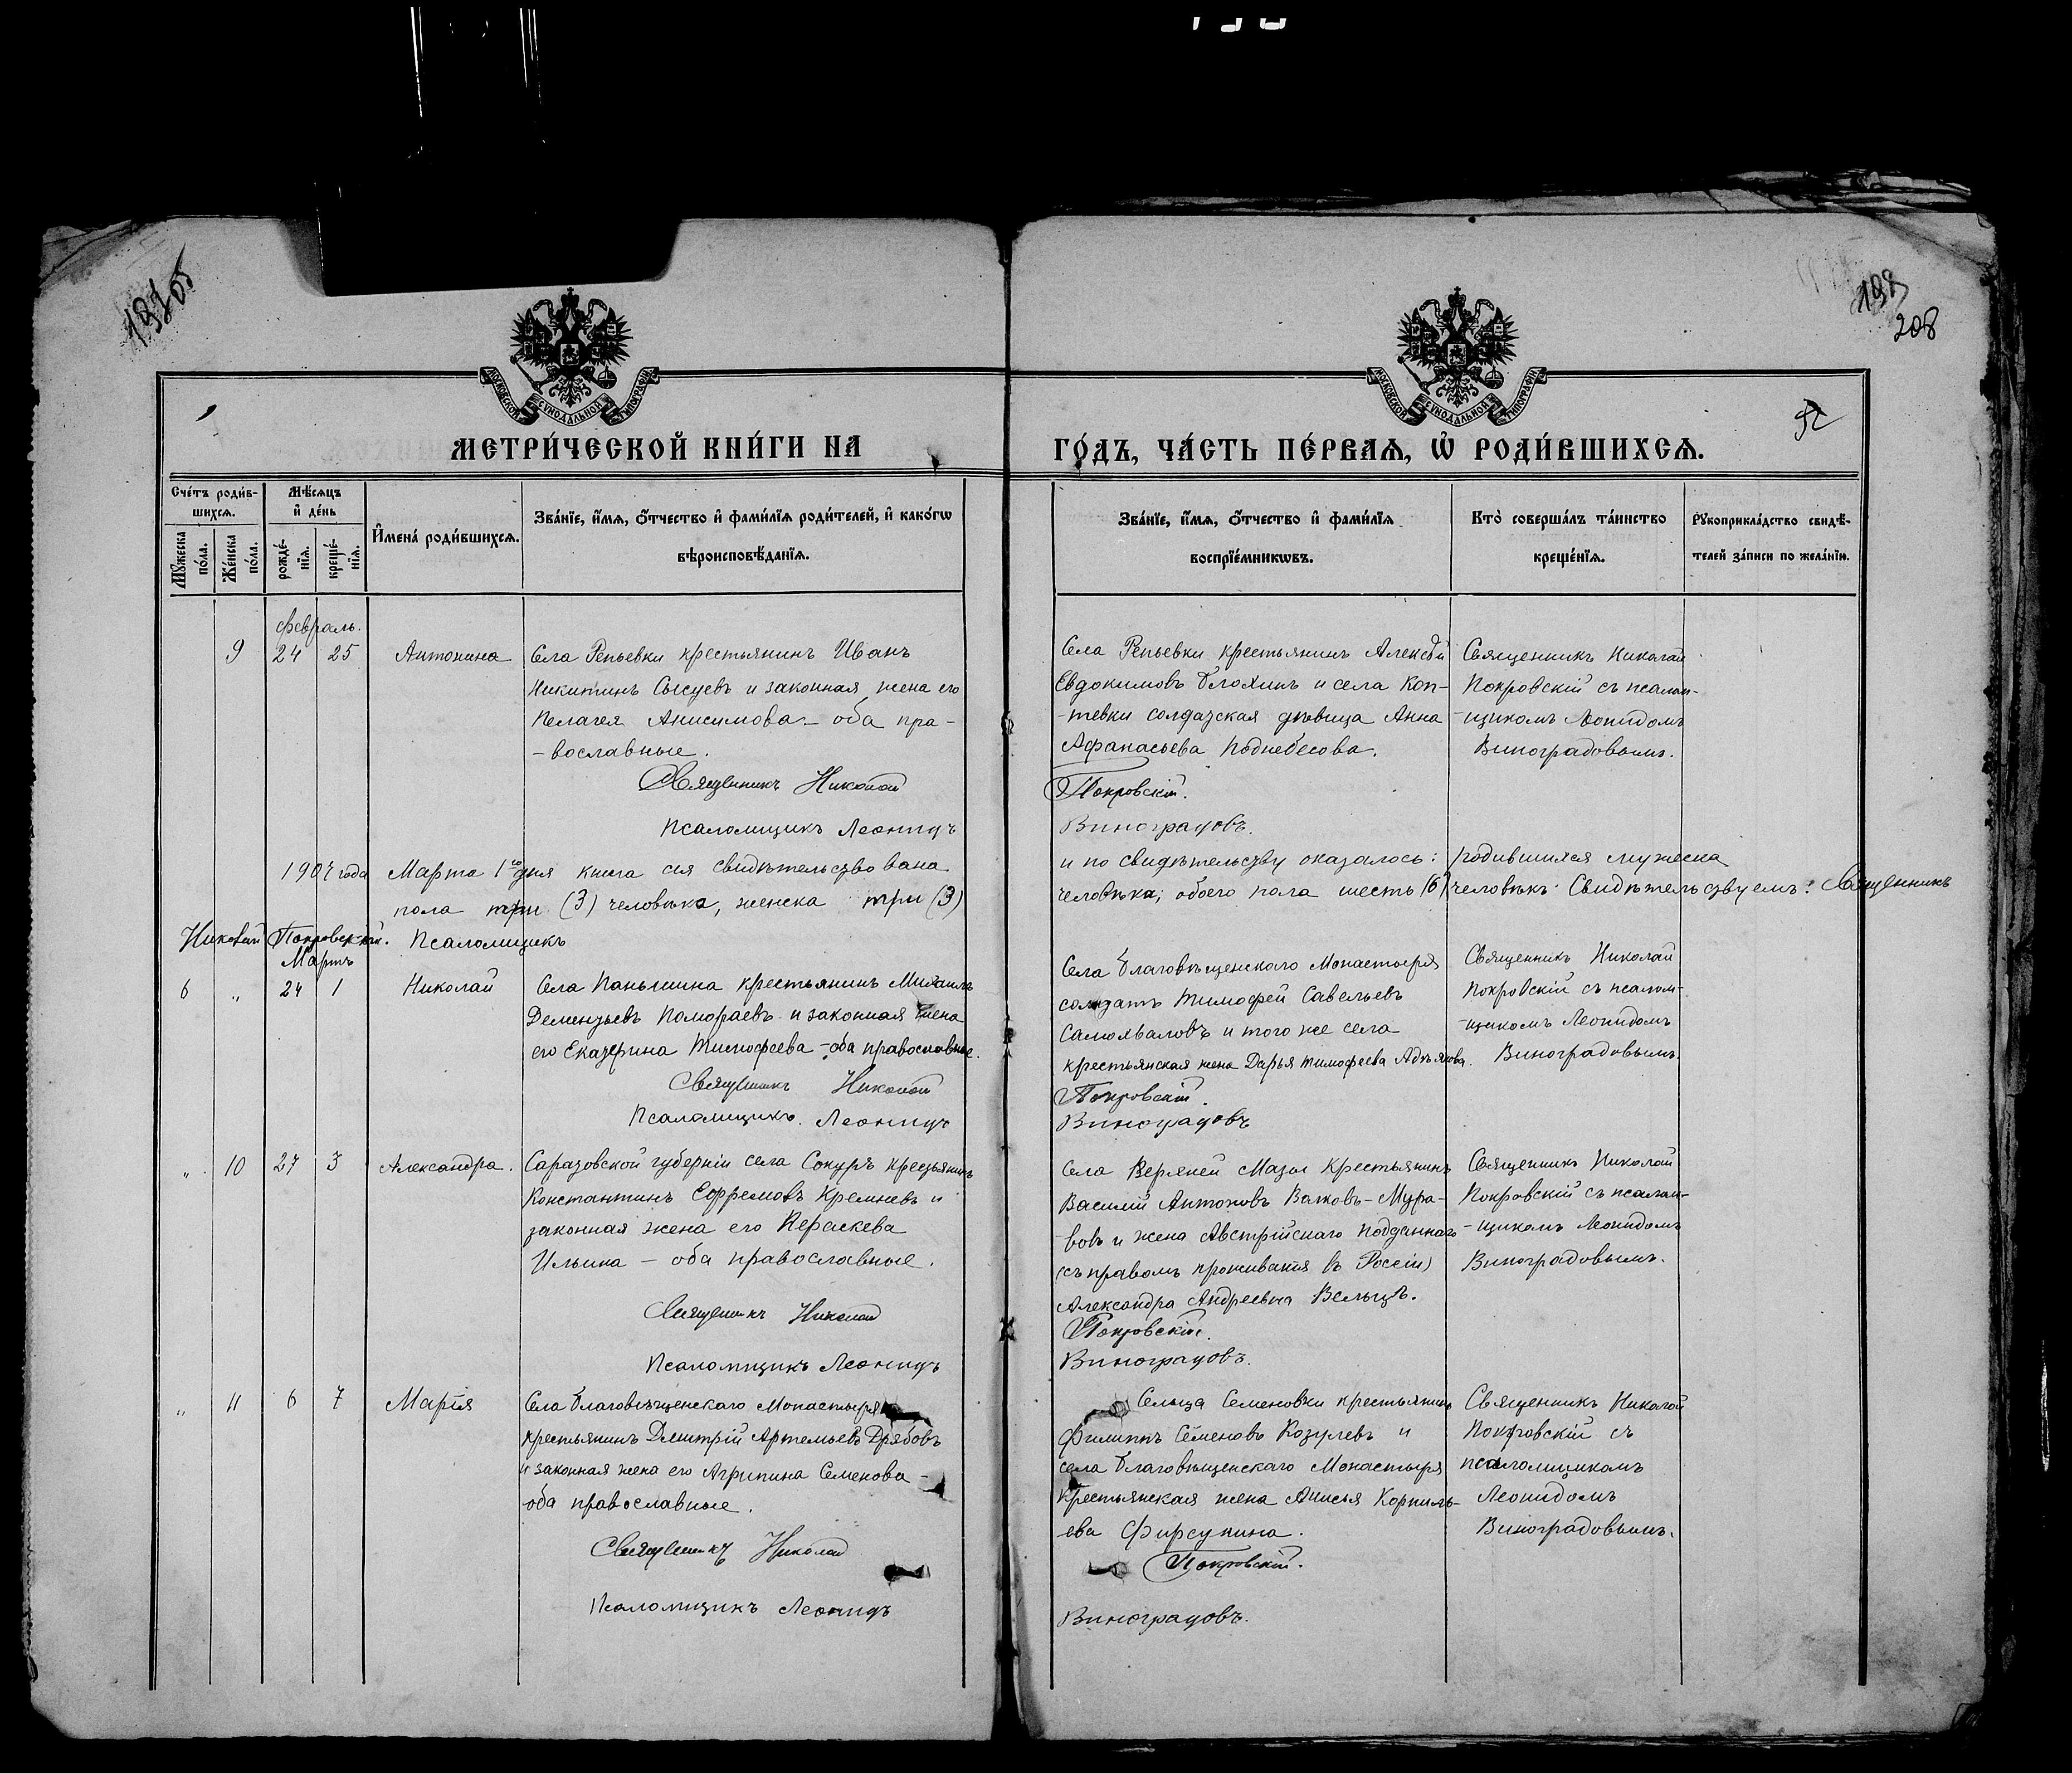 193
208
МОСКОВСКОЙ СѴНОДАЛЬНОЙ ТИПОГРАФІИ
МОСКОВСКОЙ СѴНОДАЛЬНОЙ ТИПОГРАФІИ
МЕТРИ́ЧЕСКОЙ КНИ́ГИ НА
ГО́ДЪ, ЧА́СТЬ ПЕ́РВАѦ, Ѡ҆ РОДИ́ВШИХСѦ.
Сче́тъ роди́в-
шихсѧ.
Мꙋ́жеска по́ла.
Же́нска по́ла.
Мѣ́сѧцъ
и҆ де́нь
рожде́-
нїѧ.
креще́-
нїѧ.
И҆мена̀ роди́вшихсѧ.
Зва́нїе, и҆́мѧ, ѻ҆́тчество и҆ фами́лїѧ роди́телей, и҆ како́гѡ
вѣроисповѣ́данїѧ.
Зва́нїе, и҆́мѧ, ѻ҆́тчество и҆ фами́лїѧ
воспрїе́мникѡвъ.
Кто̀ соверша́лъ та́инство
креще́нїѧ.
Рꙋкоприкла́дство свидѣ́-
телей за́писи по жела́нїю.
Февраль.
9 24 25 Антонина
Села Репьевки крестьянинъ Иванъ
Никитинъ Сысуевъ и законная жена его
Пелагея Анисимова – оба пра-
-вославные.
Священникъ Николай
Псаломщикъ Леонидъ
Села Репьевки крестьянинъ Алексѣй
Евдокимовъ Блохинъ и села Коп-
-тевки солдатская дѣвица Анна
Афанасьева Поднебесова.
Покровскій.
Виноградовъ.
Священникъ Николай
Покровскій съ псалом-
-щикомъ Леонидомъ
Виноградовымъ.
1904 года Марта 1го дня книга сія свидѣтельствована и по свидѣтельству оказалось: родившихся мужеска
пола три (3) человѣка, женска три (3) человѣка; обоего пола шесть (6) человѣкъ. Свидѣтельствуемъ: Священникъ
Николай Покровскій. Псаломщикъ
Мартъ
6 „ 24 1 Николай
Села Паньшина крестьянинъ Михаилъ
Дементьевъ Помораевъ и законная жена
его Екатерина Тимофеева – оба православные.
Священникъ Николай
Псаломщикъ Леонидъ
Села Благовѣщенскаго Монастыря
солдатъ Тимофей Савельевъ
Самохваловъ и того же села
крестьянская жена Дарья Тимофеева
Покровскій.
Виноградовъ
Священникъ Николай
Покровскій съ псалом-
-щикомъ Леонидомъ
Виноградовымъ.
„ 10 27 3 Александра.
Саратовской губерніи села Сокуръ крестьянинъ
Константинъ Ефремовъ Кремневъ и
законная жена его Пераскева
Ильина – оба православные.
Священникъ Николай
Псаломщикъ Леонидъ
Села Верхней Мазы крестьянинъ
Василій Антоновъ Валковъ-Мура-
вовъ и жена Австрійскаго подданнаго
(съ правомъ проживанія въ Россіи)
Александра Андреевна Вельцъ.
Покровскій.
Виноградовъ.
Священникъ Николай
Покровскій съ псалом-
-щикомъ Леонидомъ
Виноградовымъ.
„ 11 6 7 Марія
Села Благовѣщенскаго Монастыря
крестьянинъ Дмитрій Артемьевъ Дрябовъ
и законная жена его Агрипина Семенова –
оба православные.
Священникъ Николай
Псаломщикъ Леонидъ
Сельца Семеновки крестьянинъ
Филиппъ Семеновъ Козулевъ и
села Благовѣщенскаго Монастыря
крестьянская жена Анисья Корниль-
ева Фирсунина.
Покровскій.
Виноградовъ.
Священникъ Николай
Покровскій съ
псаломщикомъ
Леонидомъ
Виноградовымъ.